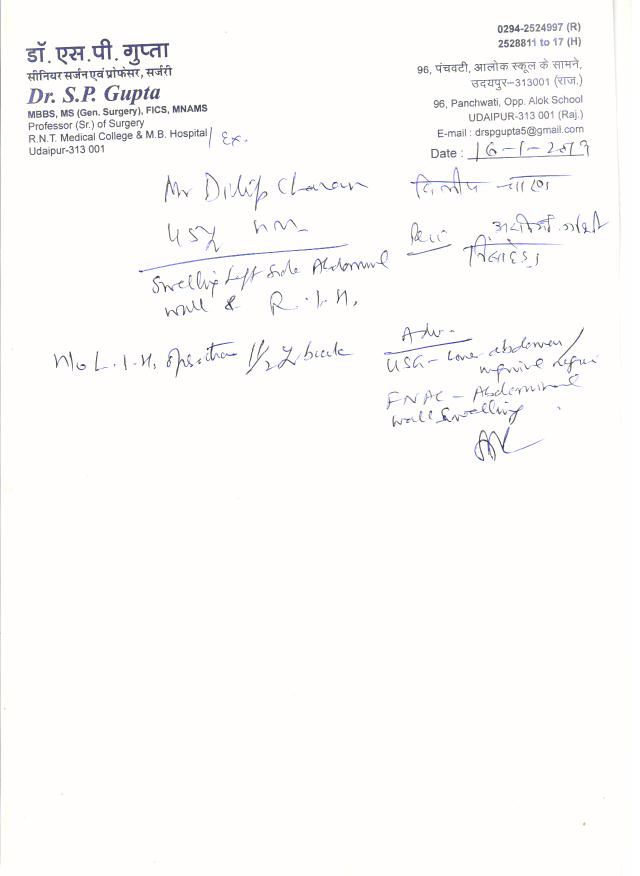 डॉ. एस.पी. गुप्ता
सीनियर सर्जन एवं प्रोफेसर, सर्जरी
Dr. S.P. Gupta
MBBS, MS (Gen. Surgery), FICS, MNAMS
Professor (Sr.) of Surgery
R.N.T. Medical College & M.B. Hospital / Ex.
Udaipur-313 001
0294-2524997 (R)
2528811 to 17 (H)
96, पंचवटी, आलोक स्कूल के सामने,
उदयपुर–313001 (राज.)
96, Panchwati, Opp. Alok School
UDAIPUR-313 001 (Raj.)
E-mail : drspgupta5@gmail.com
Date : 16-1-2013
Mr Dilip Charan
दिलीप चारण
45y
Swelling Left Side Abdominal
wall & R.I.H.
H/o L.I.H. Operation 1 1/2 y back
Adv.
USG - Lower abdomen /
inguinal region
FNAC - Abdominal
wall swelling